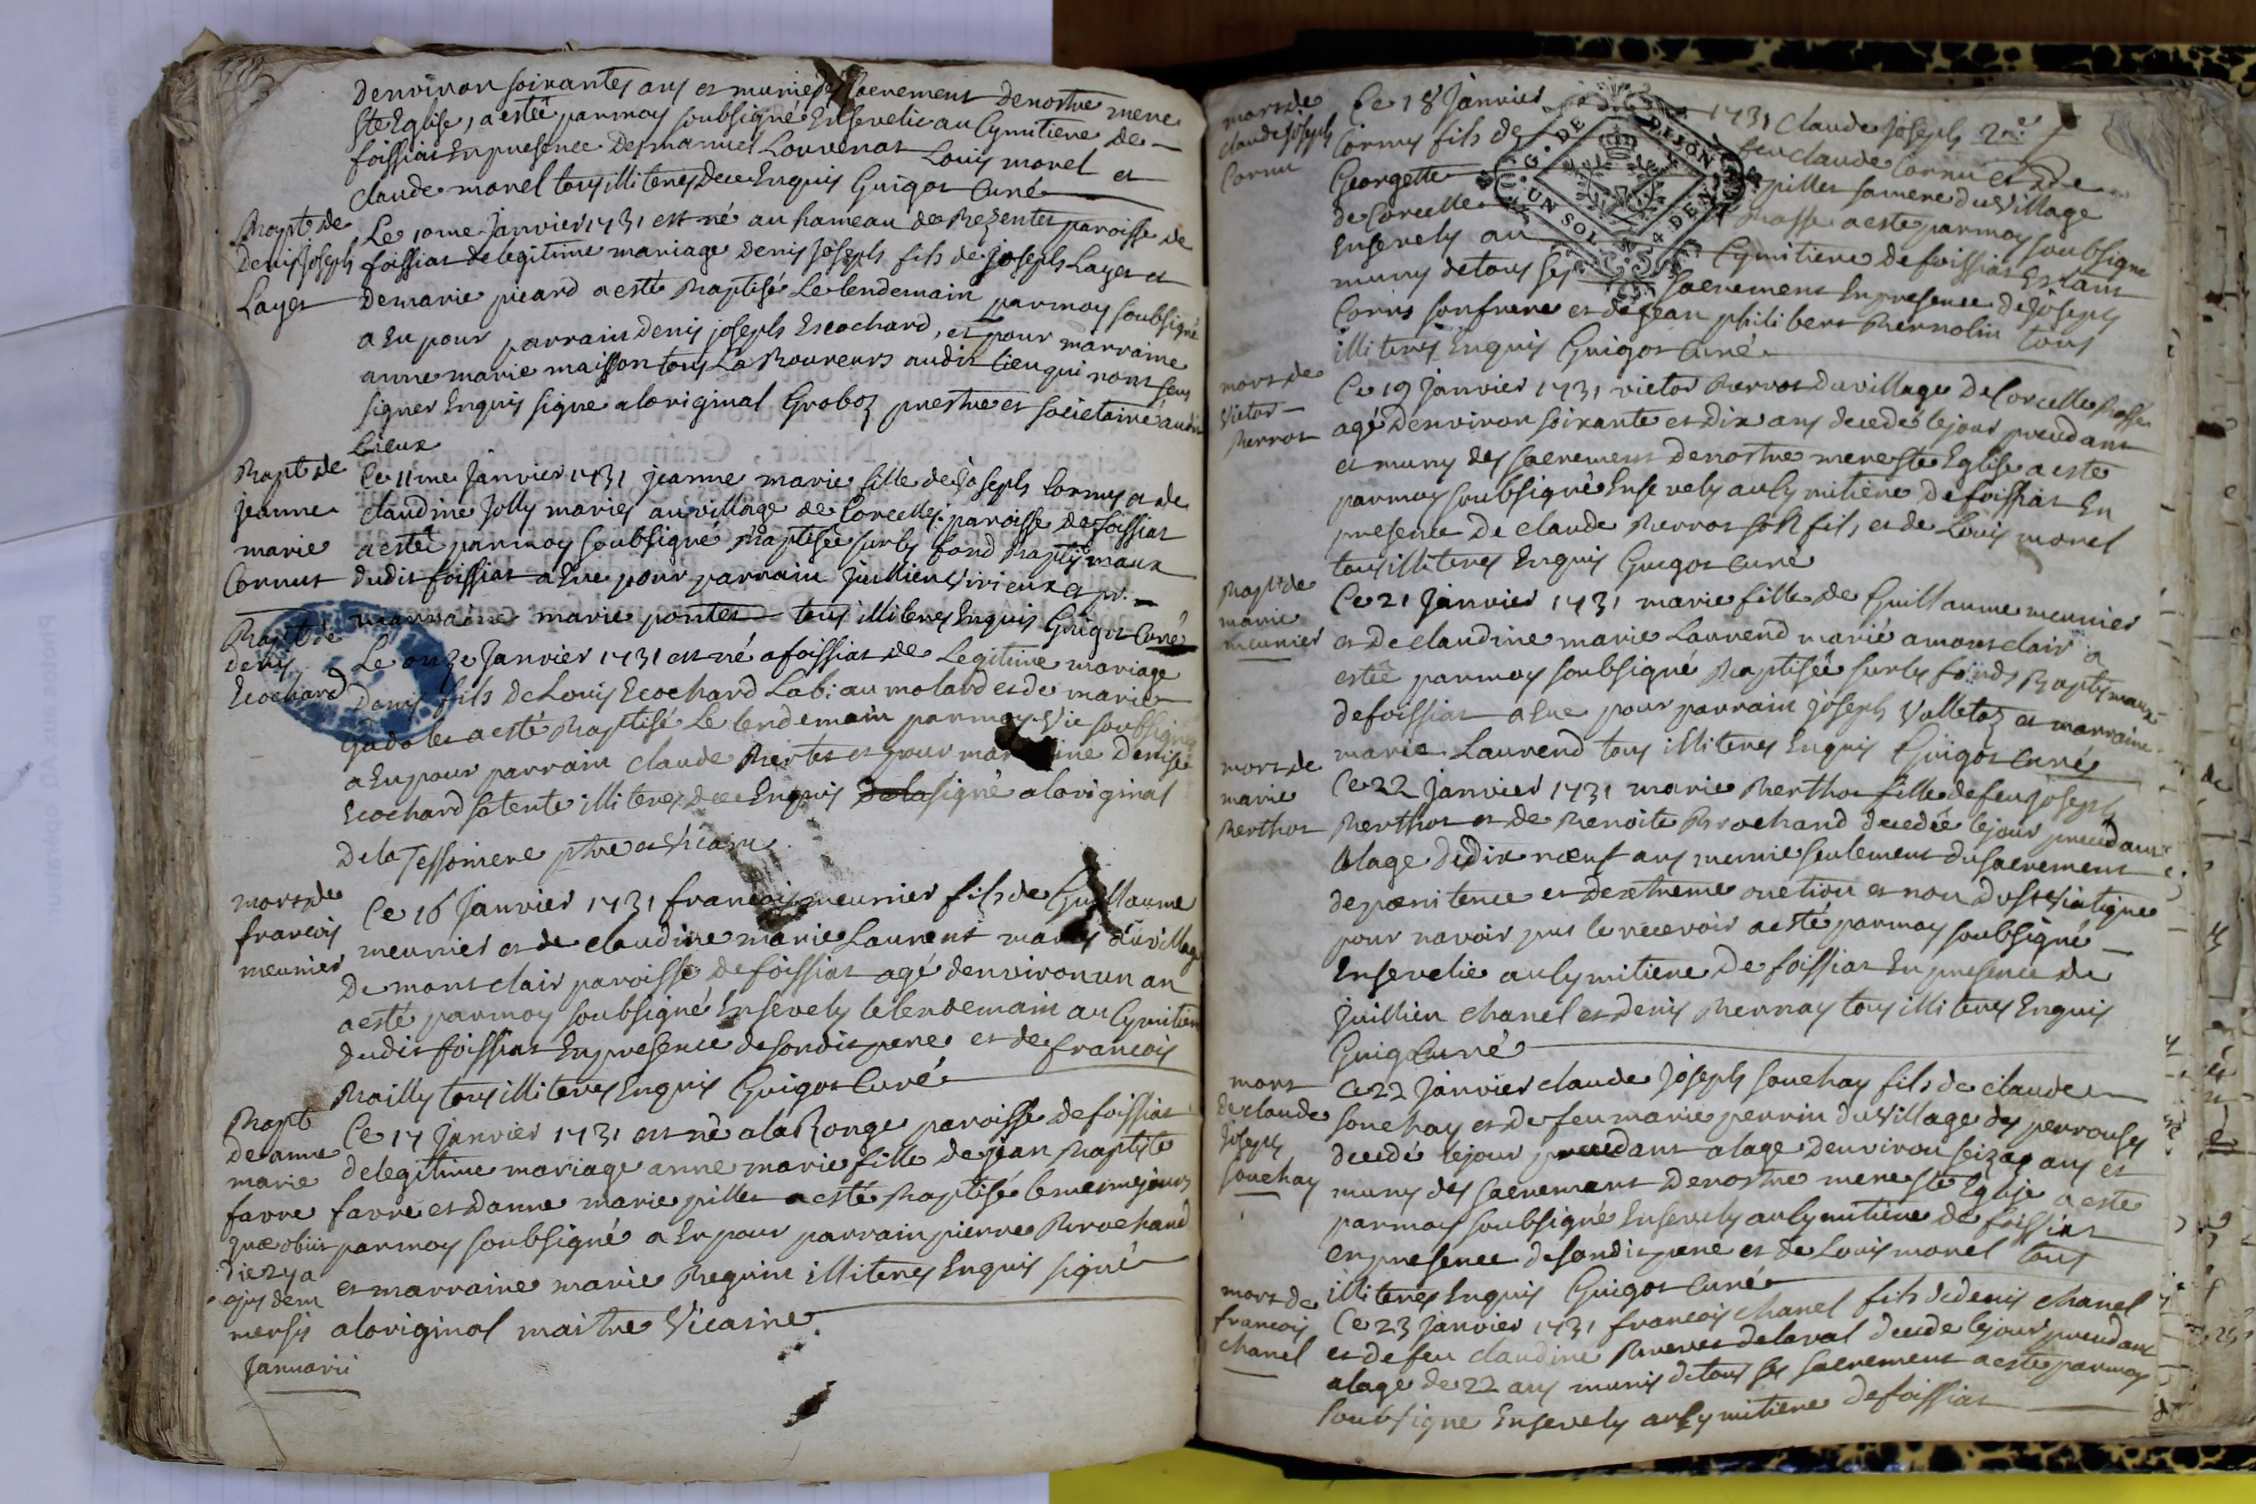 denviron soixantes ans et munie des Sacrement de nostre mere
Ste Eglise, a estée par moy soubsigné Ensevelie au Cymitiere de
foissiat En presence De manuel Louvenat Louis morel et
Claude morel tous illiteres de ce Enquis Guigot Curé
Bapt de
Denis Joseph
Layet
Le 10me Janvier 1731 est né au hameau de Bezentet paroisse de
foissiat de legitime mariage denis Joseph fils de Joseph Layet et
de marie picard a esté Baptisé le lendemain par moy soubsigné
a Eu pour parrain denis joseph Escochard, et pour marraine
anne marie maisson tous Laboureurs audit lieu qui n'ont sceus
signer Enquis signe a loriginal Groboz prestre et societaire audit
Lieux
Bapt de
jeanne
marie
Cornut
Ce 11me Janvier 1731 jeanne marie fille de Joseph Cornu et de
claudine Jolly mariés au village de Corcelles paroisse de foissiat
a estée par moy soubsigné Baptisée sur les fond Baptismaux
dudit foissiat a Eue pour parrain Jullien Vivieux et pr.
marraine marie pontet tous illiteres Enquis Guigot Curé
Bapt de
denis
Ecochard
Le onze Janvier 1731 est né a foissiat de Legitime mariage
Denis fils de Louis Ecochard Lab: au molard et de marie
gadolet a esté Baptisé Le lendemain par moy Vic soubsigné
a Eu pour parrain claude Bertet et pour marraine Denise
Ecochard sa tente illiteres de ce Enquis signé a loriginal
De la Tessoniere ptre et Vicaire
mort de
francois
meunier
Ce 16 Janvier 1731 francois meunier fils de Guillaume
meunier et de claudine marie Laurent mariés du village
De mont clair paroisse de foissiat agé denviron un an
a esté par moy soubsigné Ensevely le lendemain au Cymitiere
dudit foissiat En presence de son dit pere et de francois
Bailly tous illiteres Enquis Guigot Curé
Bapt
de anne
marie
favre
quæ obiit
die
ejusdem
mensis
Januarii
Ce 17 Janvier 1731 est né a la Ronge paroisse de foissiat
de legitime mariage anne marie fille de jean Baptiste
favre et danne marie pillet a esté Baptisé le mesme jours
par moy soubsigné a Eu pour parrain pierre Brochand
et marraine marie Beguin illiteres Enquis signé
a loriginal maitre Vicaire
mort de
claude Joseph
Cornu
Ce 18 Janvier 1731 Claude Joseph
Cornu fils de feu claude Cornu et de
Georgette pillet sa mere du village
de Corcelle Basse a esté par moy soubsigné
Ensevely au Cymitiere de foissiat Estant
muny de tous ses Sacrement En presence de Joseph
Cornu son frere et de jean philibert Bernolin tous
illiteres Enquis Guigot Curé
G. DE DIJON
UN SOL 4 DEN
mort de
Victor
Perrot
Ce 19 Janvier 1731 victor Perrot du village de Corcelle Basse
agé denviron soixante et dix ans decedé le jour precedant
et muny des sacrement de nostre mere ste Eglise a esté
par moy soubsigné Ensevely au Cymitiere de foissiat En
presence de claude Perrot son fils, et de Louis morel
tous illiteres Enquis Guigot curé
Bapt de
marie
meunier
Ce 21 Janvier 1731 marie fille de Guillaume meunier
et de claudine marie Laurend marié a mont clair a
estée par moy soubsigné Baptisée sur les fonds Baptismaux
de foissiat a Eue pour parrain joseph Valletaz et marraine
marie Laurend tous illiteres Enquis Guigot Curé
mort de
marie
Berthot
Ce 22 Janvier 1731 marie Berthot fille de feu joseph
Berthot et de Benoite Brochand decedée le jour precedant
alage de dix noeuf ans munie seulement du sacrement
de pœnitence et d'extreme onction et non du st viatique
pour navoir pus le recevoir a esté par moy soubsigné
Ensevelie au Cymitiere de foissiat En presence de
Juillien chanel et denis Bernay tous illiteres Enquis
Guigot Curé
mort
de claude
Joseph
souchay
Ce 22 Janvier claude Joseph souchay fils de claude
souchay et de feu marie perrin du village des perrouses
decedé le jour precedant a lage denviron seizas ans et
muny des sacrement de nostre mere ste Eglise a esté
par moy soubsigné Ensevely au Cymitiere de foissiat
en presence de son dit pere et de Louis morel tous
illiteres Enquis Guigot Curé
mort de
francois
chanel
Ce 23 Janvier 1731 francois chanel fils de denis chanel
et de feu claudine Bruevet de laval decedé le jour precedant
a lage de 22 ans munis de tous les sacrement a esté par moy
soubsigné Ensevely au Cymitiere de foissiat